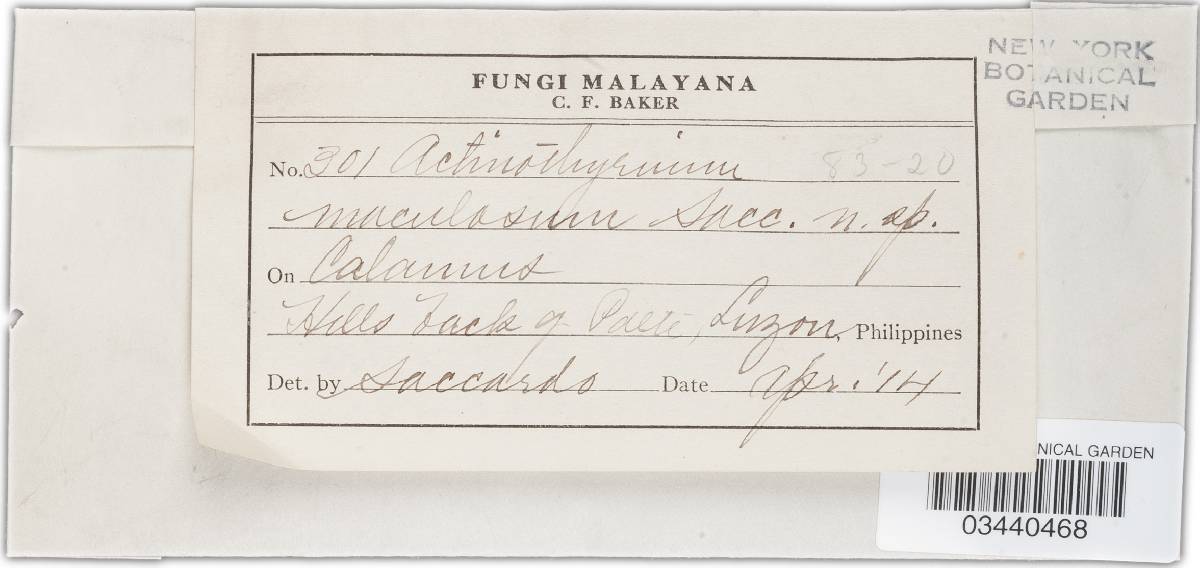 NEW YORK
BOTANICAL
GARDEN
FUNGI MALAYANA
C. F. BAKER
No. 301 Actinothyrium 83-20
maculosum Sacc. n. sp.
On Calamus
Hills back of Paete, Luzon, Philippines
Det. by Saccardo Date Apr. '14
NICAL GARDEN
03440468